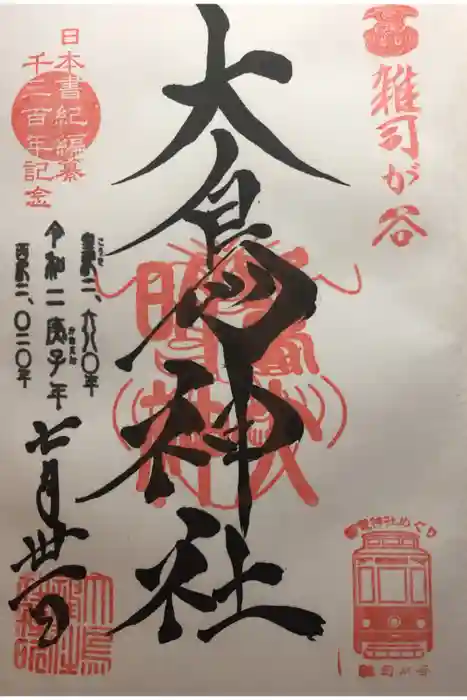 雑司が谷
大鳥神社
日本書紀編纂
千三百年記念
皇紀二、六八〇年
こうき
令和二庚子年
かのえね
七月卅一日
西暦二、〇二〇年
都電神社めぐり
雑司が谷